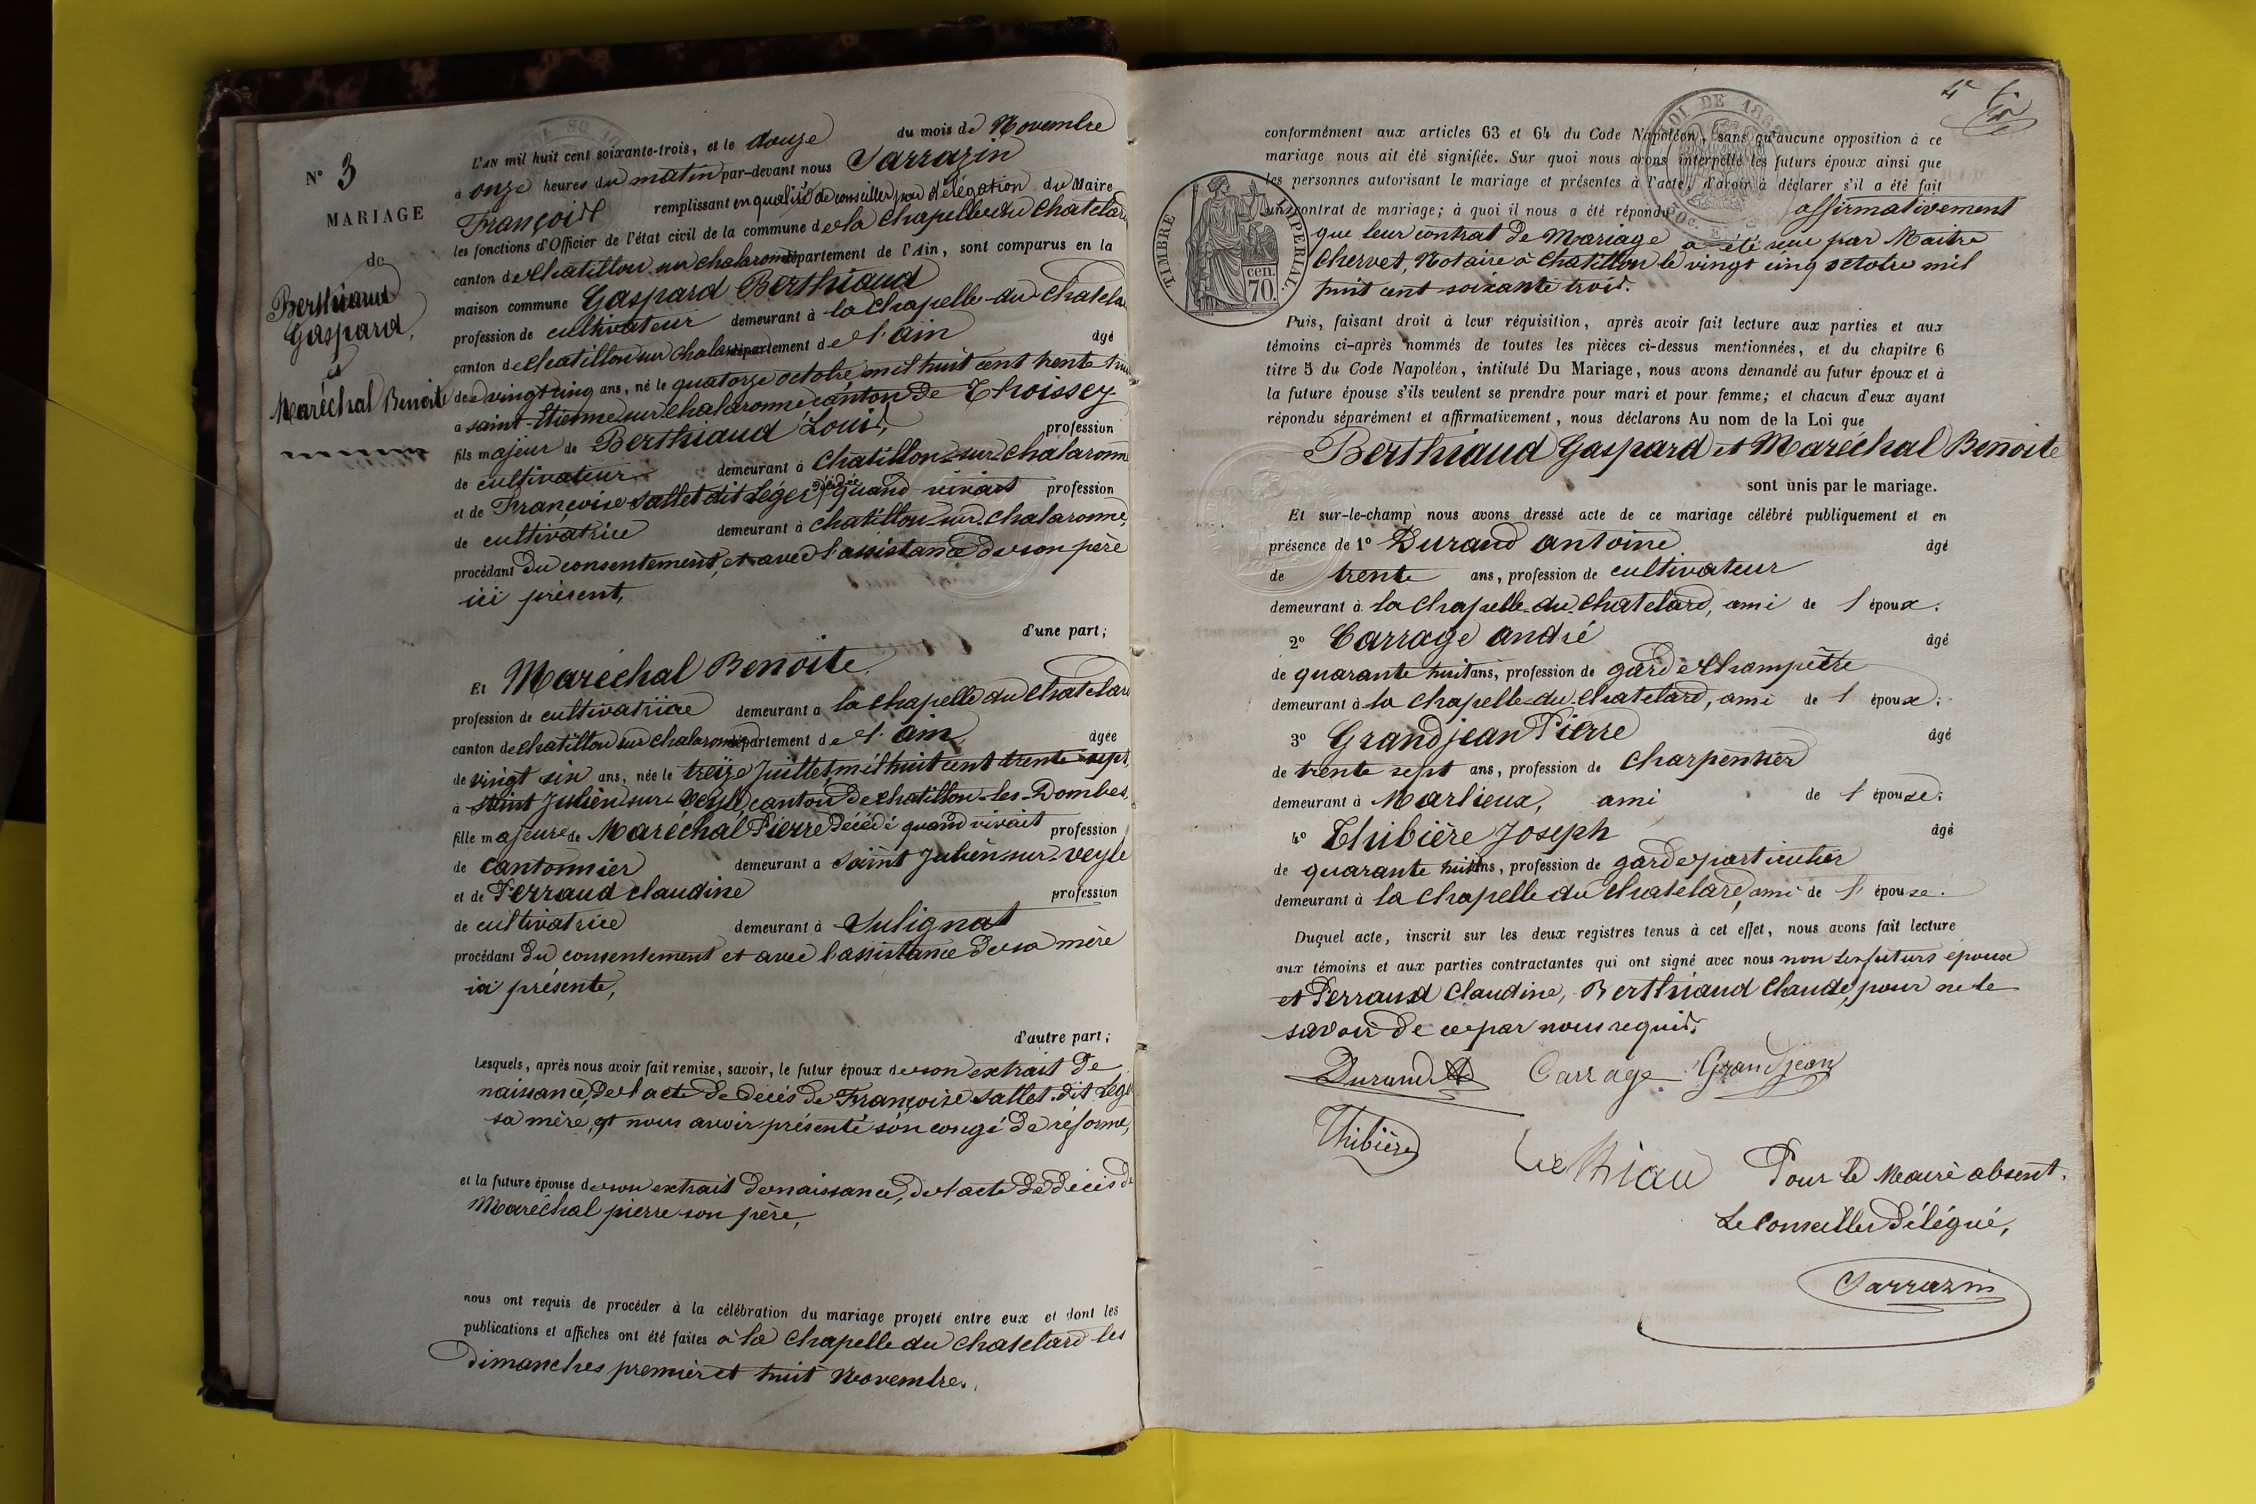 N° 3
MARIAGE
de
Berthiaud
Gaspard,
et
Maréchal Benoite
L'AN mil huit cent soixante-trois, et le douze du mois de Novembre
à onze heures du matin par-devant nous Sarrazin
François remplissant en qualité de conseiller par délégation du Maire
les fonctions d'Officier de l'état civil de la commune de la Chapelle du Chatelard
canton de Chatillon sur chalaronne département de l'Ain, sont comparus en la
maison commune Gaspard Berthiaud
profession de cultivateur demeurant à la Chapelle-du-Chatelard
canton de Chatillon sur chalaronne département de l'ain âgé
de vingt cinq ans, né le quatorze octobre mil huit cent trente huit
à saint-Etienne sur Chalaronne canton de Thoissey
fils majeur de Berthiaud Louis, profession
de cultivateur demeurant à Chatillon-sur-chalaronne
et de Françoise Sallet dit Léger décédée quand vivait profession
de cultivatrice demeurant à chatillon-sur-chalaronne,
procédant du consentement, et avec l'assistance de son père
ici présent,
d'une part;
Et Maréchal Benoite
profession de cultivatrice demeurant à la chapelle du Chatelard
canton de Chatillon sur Chalaronne département de l'ain âgée
de vingt six ans, née le treize Juillet mil huit cent trente sept
à Saint Julien sur Veyle canton de chatillon-les-Dombes
fille majeure de Maréchal Pierre Décédé quand vivait profession
de cantonnier demeurant à Saint Julien-sur-Veyle
et de Perraud Claudine profession
de cultivatrice demeurant à Sulignat
procédant du consentement et avec l'assistance de sa mère
ici présente,
d'autre part;
Lesquels, après nous avoir fait remise, savoir, le futur époux de son extrait de
naissance, de l'acte de décès de Françoise Sallet dit Léger
sa mère, et nous avoir présenté son congé de réforme,
et la future épouse de son extrait de naissance, de l'acte de décès de
Maréchal pierre son père,
nous ont requis de procéder à la célébration du mariage projeté entre eux et dont les
publications et affiches ont été faites à la Chapelle du Chatelard les
dimanches premier et huit Novembre.
4e
LOI DE 1862
conformément aux articles 63 et 64 du Code Napoléon, sans qu'aucune opposition à ce
mariage nous ait été signifiée. Sur quoi nous avons interpellé les futurs époux ainsi que
les personnes autorisant le mariage et présentes à l'acte, d'avoir à déclarer s'il a été fait
un contrat de mariage; à quoi il nous a été répondu affirmativement
TIMBRE IMPERIAL
cen. 70.
que leur contrat de Mariage a été reçu par Maître
Chervet, Notaire à Chatillon le vingt cinq octobre mil
huit cent soixante trois.
Puis, faisant droit à leur réquisition, après avoir fait lecture aux parties et aux
témoins ci-après nommés de toutes les pièces ci-dessus mentionnées, et du chapitre 6
titre 5 du Code Napoléon, intitulé Du Mariage, nous avons demandé au futur époux et à
la future épouse s'ils veulent se prendre pour mari et pour femme; et chacun d'eux ayant
répondu séparément et affirmativement, nous déclarons Au nom de la Loi que
Berthiaud Gaspard et Maréchal Benoite
sont unis par le mariage.
Et sur-le-champ nous avons dressé acte de ce mariage célébré publiquement et en
présence de 1° Durand antoine âgé
de trente ans, profession de cultivateur
demeurant à la Chapelle-du-Chatelard, ami de l'époux;
2° Carrage andré âgé
de quarante huit ans, profession de garde Champêtre
demeurant à la Chapelle-du-Chatelard, ami de l'époux;
3° Grandjean Pierre âgé
de trente sept ans, profession de Charpentier
demeurant à Marlieux, ami de l'épouse;
4° Thibière Joseph âgé
de quarante huit ans, profession de garde particulier
demeurant à la Chapelle du Chatelard, ami de l'épouse.
Duquel acte, inscrit sur les deux registres tenus à cet effet, nous avons fait lecture
aux témoins et aux parties contractantes qui ont signé avec nous non les futurs époux
et Perraud Claudine, Berthiaud Claude, pour ne le
savoir de ce par nous requis.
Durand Carrage Grandjean
Thibière
Pour le Maire absent.
Le Conseiller Délégué,
Sarrazin